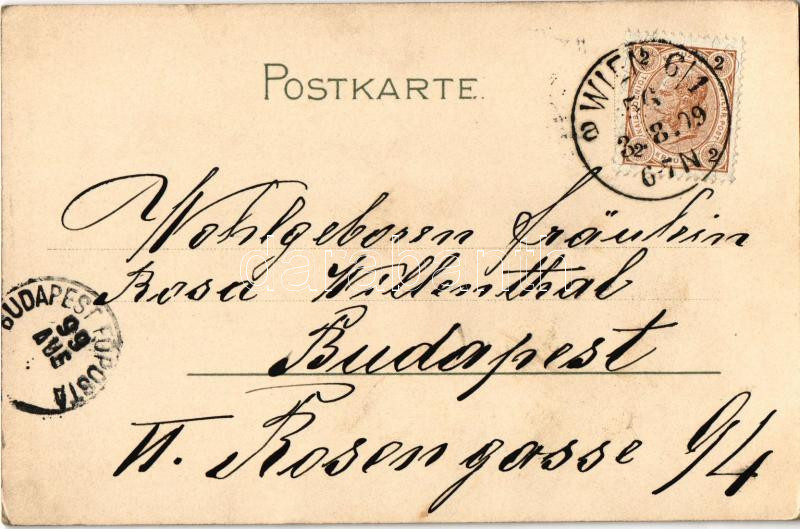 POSTKARTE.
WIEN 6/1
2 2
2 2
Wohlgeboren Fräulein
Rosa Willenthal
Budapest
VI. Rosengasse 94
BUDAPEST FŐPOSTA
99
darabanth